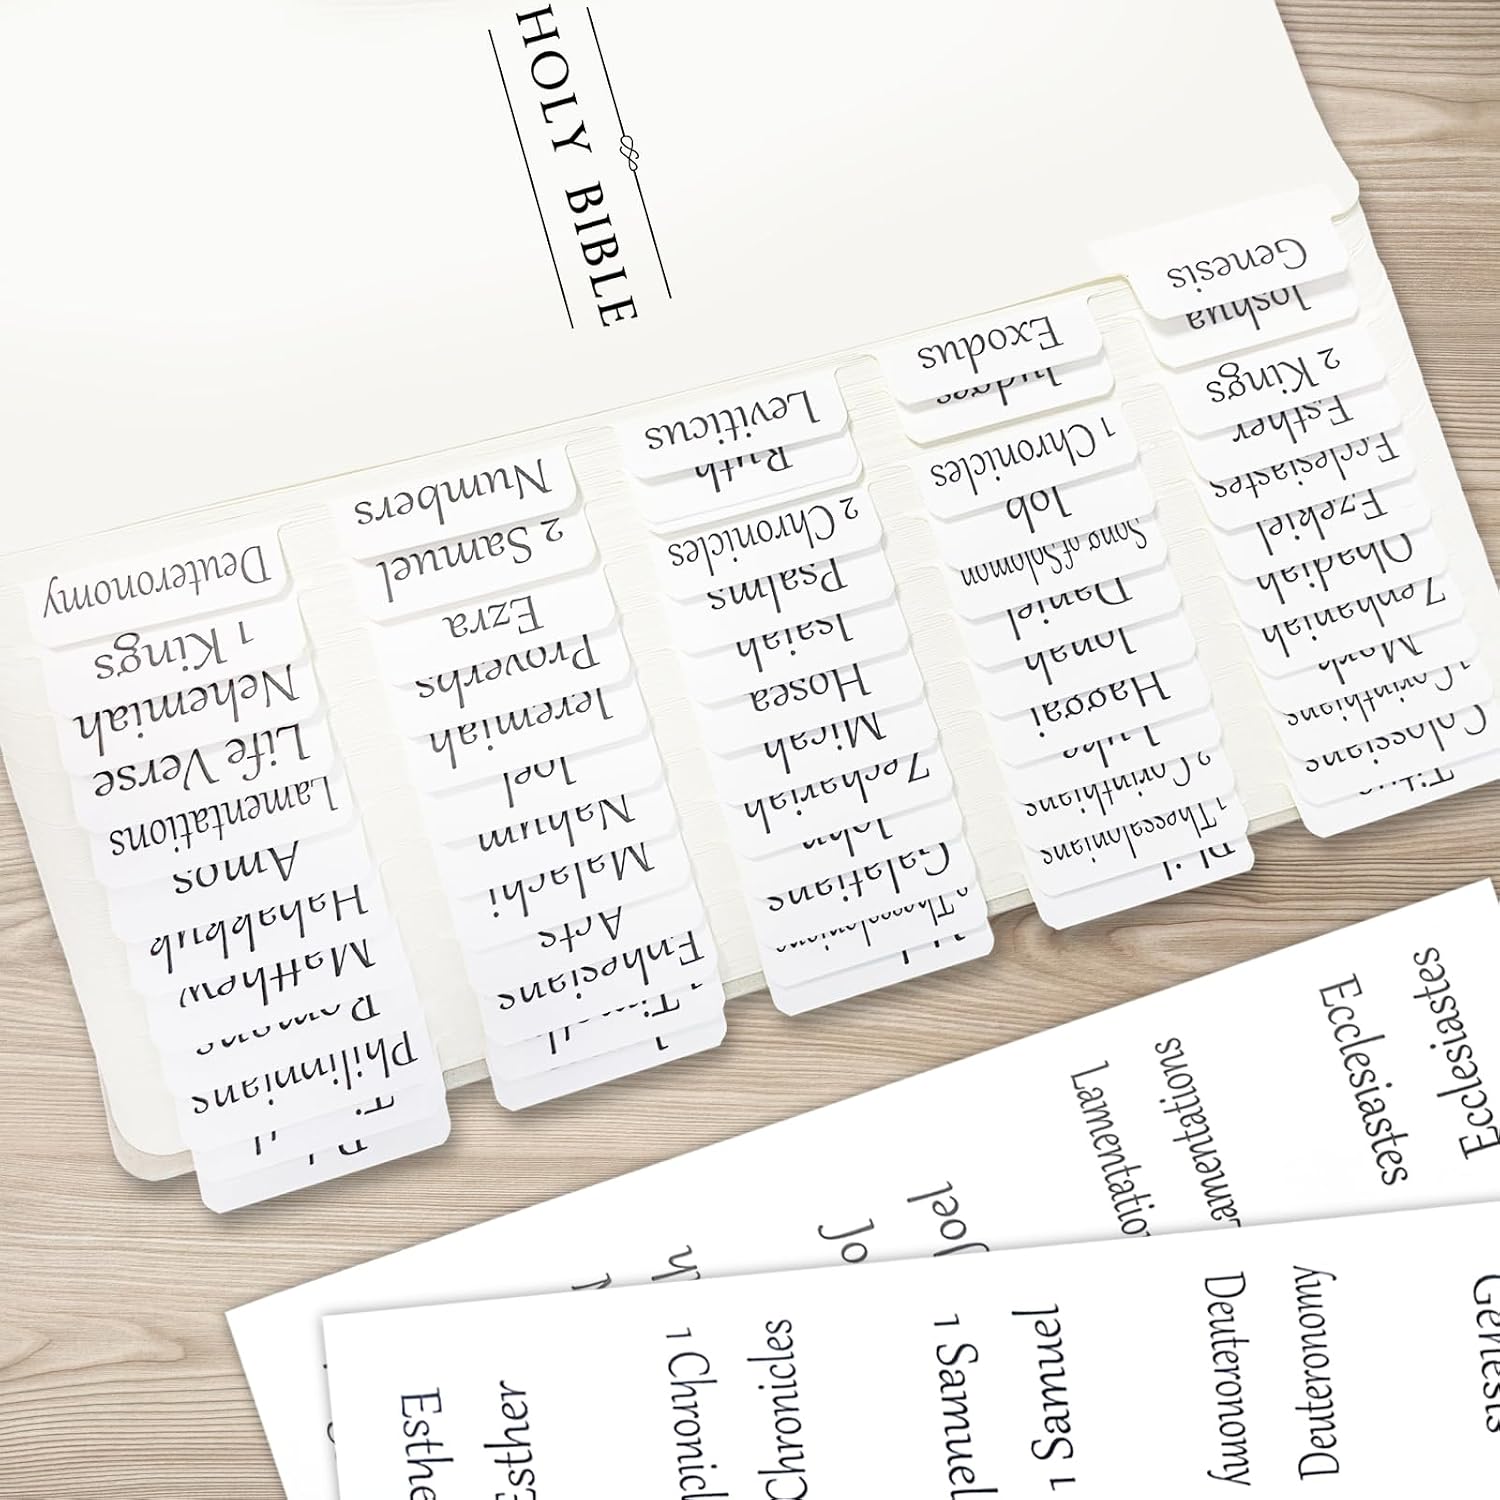 HOLY BIBLE
Genesis
Joshua
2 Kings
Esther
Ecclesiastes
Ezekiel
Obadiah
Zephaniah
Mark
1 Corinthians
Colossians
Titus
Exodus
Judges
1 Chronicles
Job
Song of Solomon
Daniel
Jonah
Haggai
Luke
2 Corinthians
1 Thessalonians
Leviticus
Ruth
2 Chronicles
Psalms
Isaiah
Hosea
Micah
Zechariah
John
Galatians
2 Thessalonians
Numbers
2 Samuel
Ezra
Proverbs
Jeremiah
Joel
Nahum
Malachi
Acts
Ephesians
Deuteronomy
1 Kings
Nehemiah
Life Verse
Lamentations
Amos
Habakkuk
Matthew
Romans
Philippians
Joel
Lamentatio
Lamentations
Ecclesiastes
Ecclesiastes
Esthe
Esther
1 Chronicl
Chronicles
1 Samuel
1 Samuel
Deuteronomy
Deuteronomy
Genesis